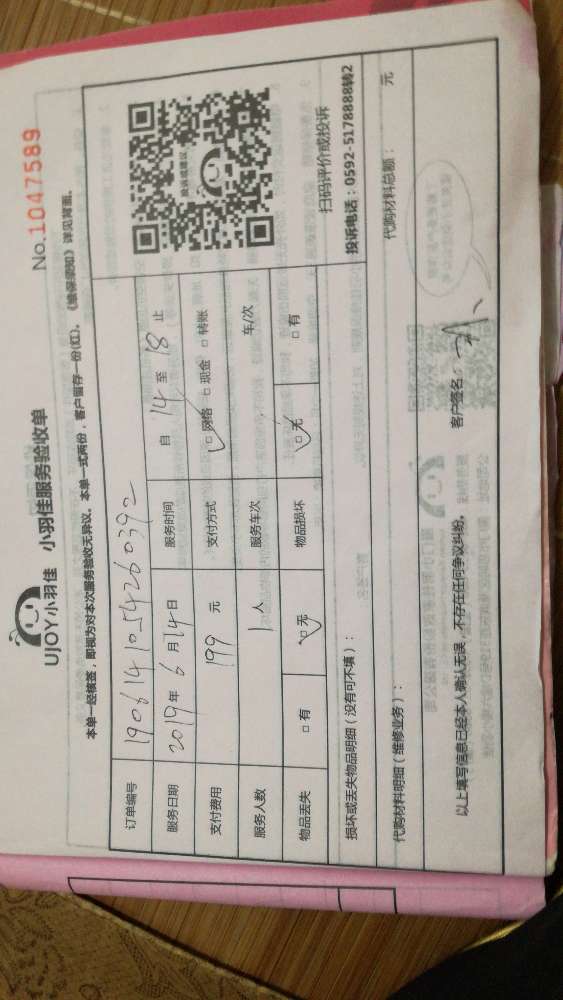 UJOY小羽佳 小羽佳服务验收单
No.1047589
本单一经核签，即视为对本次服务验收无异议。本单一式两份，客户留存一份(红)。《维保须知》详见背面。
订单编号 1906141054260392
服务日期 2019年6月14日 服务时间 自14至18止
支付费用 199元 支付方式 □网络 □现金 □转账
服务人数 1人 服务车次 车/次
物品丢失 □有 □无 物品损坏 □无 □有
投诉或建议
扫码评价或投诉
投诉电话：0592-5178888转2
损坏或丢失物品明细（没有可不填）：
代购材料明细（维修业务）： 代购材料总额： 元
以上填写信息已经本人确认无误，不存在任何争议纠纷。 客户签名：